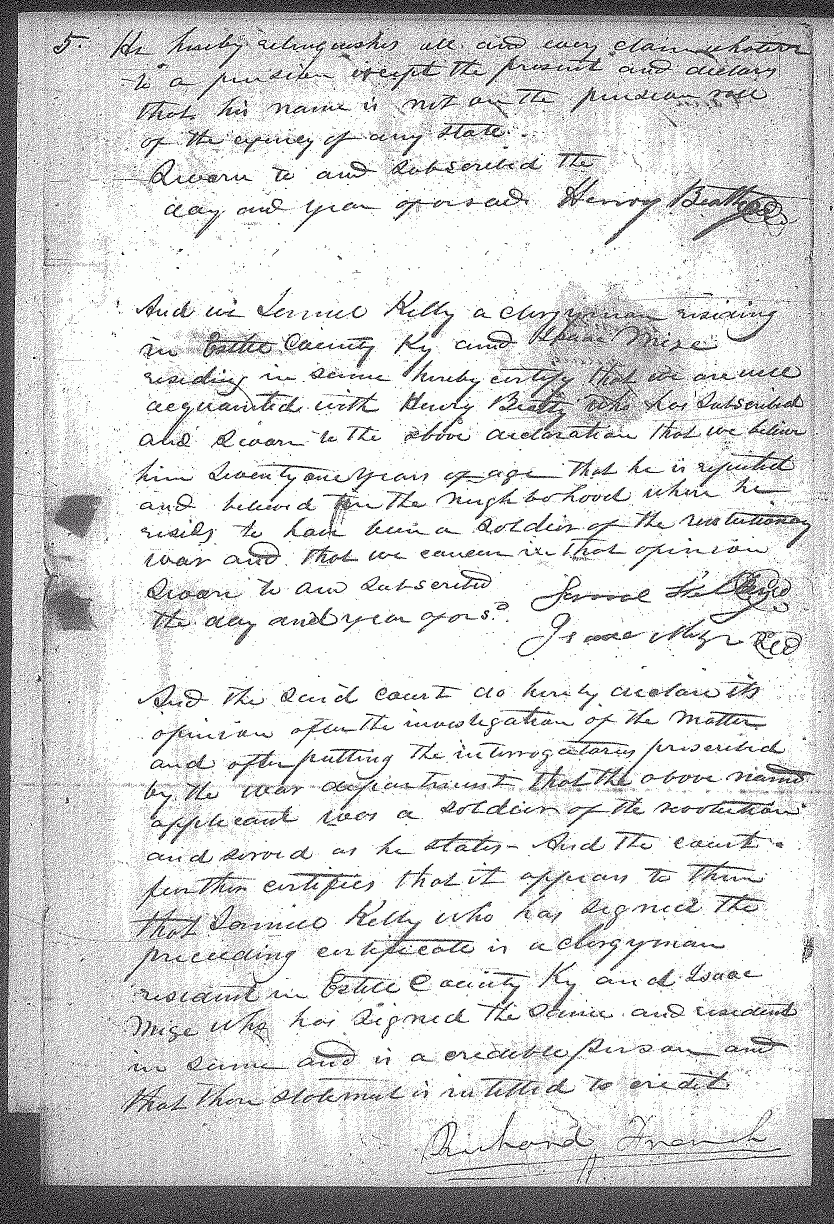 5. He hereby relinquishes all and every claim whatever
to a pension except the present and declares
that his name is not on the pension roll
of the agency of any state.
Sworn to and subscribed the
day and year aforesaid Henry Beatty
And we Samuel Kelly a clergyman residing
in Estill County Ky and Isaac Mize
residing in same hereby certify that we are well
acquainted with Henry Beatty who has subscribed
and sworn to the above declaration that we believe
him seventy one years of age that he is reputed
and believed in the neighbohood where he
resides to have been a soldier of the revolutionary
war and that we concur in that opinion
Sworn to and subscribed
the day and year afors.d Samuel Kelly
Isaac Mize
And the said court do hereby declare its
opinion after the investigation of the matter
and after putting the interrogatories prescribed
by the war department that the above named
applicant was a soldier of the revolution
and served as he states - And the court
further certifies that it appears to them
that Samuel Kelly who has signed the
preceeding certificate is a clergyman
resident in Estill County Ky and Isaac
Mize who has signed the same and resident
in same and is a credible person and
that there statement is intitled to credit
Richard French